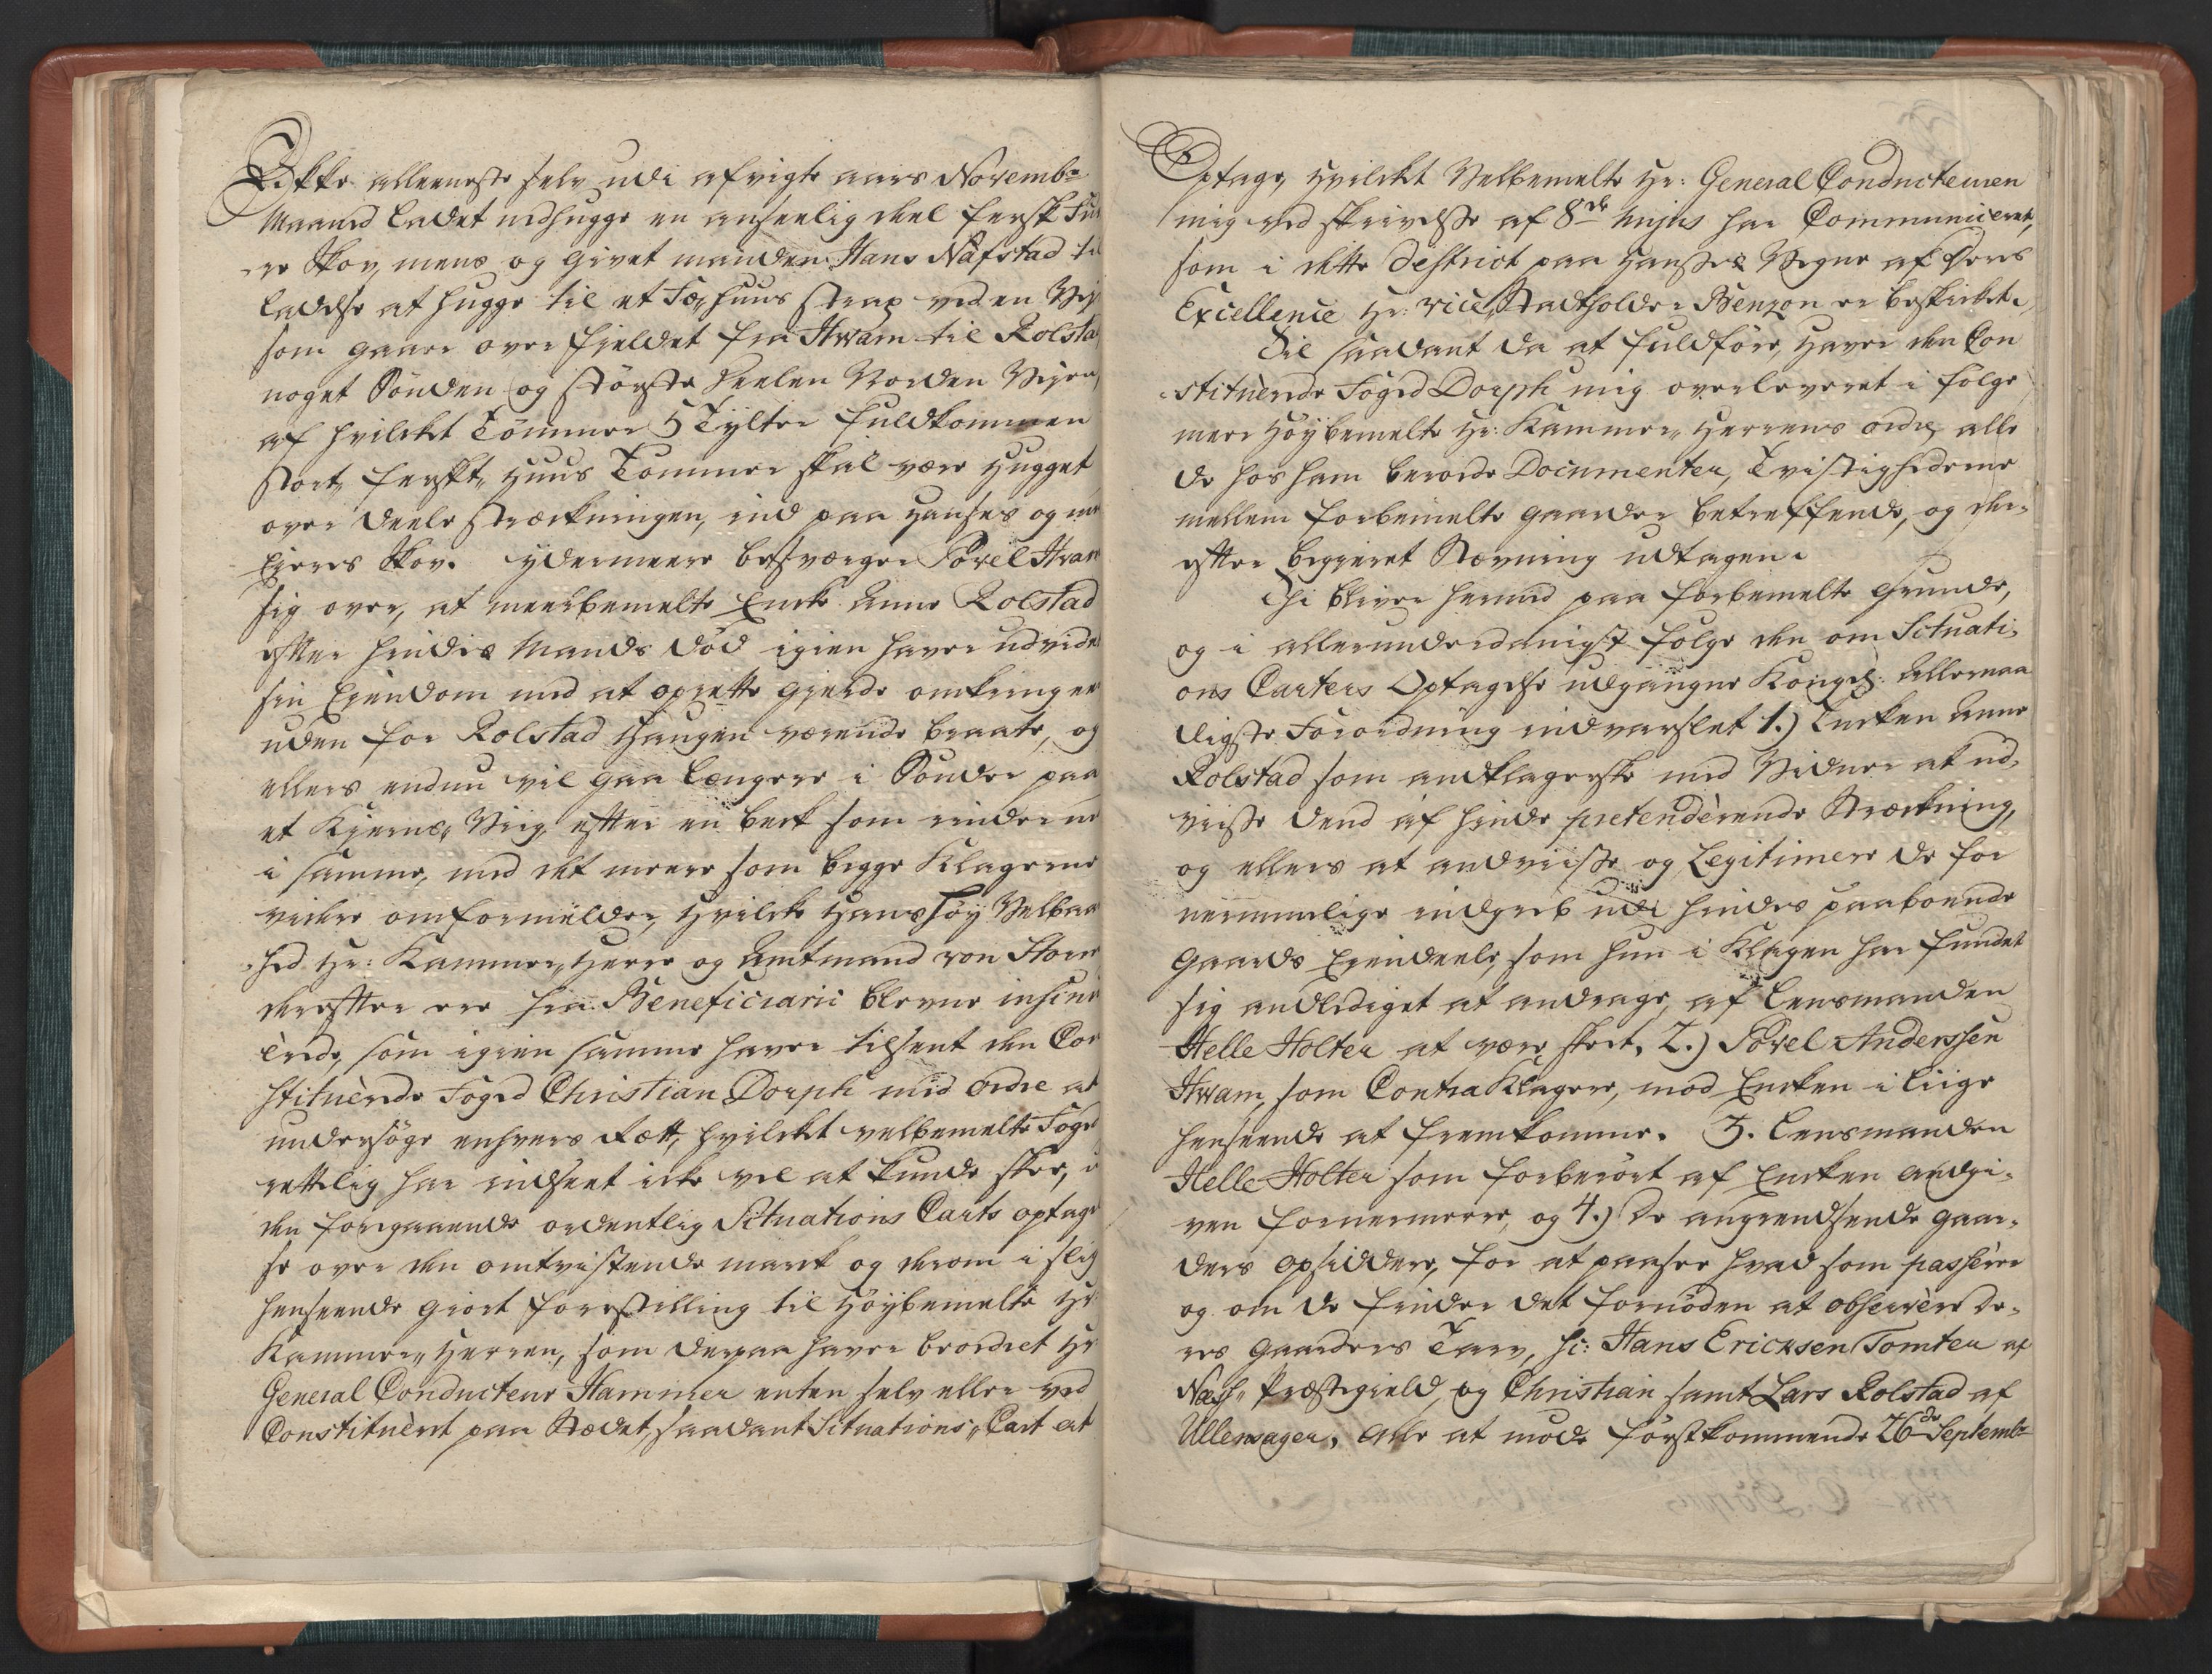 Ikke alleeneste selv udi afvigte aars Novembr
Maaned ladet nedhugge en anseelig deel fersk
er Skov, mens og givet manden Hans Näfstad til
ladelse at hugge til et Fæ,,huus strax ved en Vey
som gaaer over fieldet fra Hwam til Rolstad
noget Sönden og störste deelen Norden Veyen,
af hvilcket Tömmer 5 Tylter fuldkommen
stort, ferskt, huus Tömmer skal være hugget
over deele strækningen, ind paa Hanses og med
Eyeres Skov. ydermeere besværger Povel Hvam
sig over, at meerbemelte Encke Anne Rolstad
efter hendes Mands död igien haver udvidet
sin Eyendom med at oprette gierde omkring en
uden for Rolstad Haugen værende braate, og
ellers endnu vil gaa længere i Sönder paa
et Kierne,, Veig efter en beck som rinder ned
i samme, med det meere som begge Klagerne
videre omformelder, hvilcke Hans Höy Velbaa
hed Hr: Kammer,,Herre og Amtmand von Storm
derefter ere fra Beneficiarii blevne insinu
érede, som igien samme haver tilsent den Con
stituérede Foged Christian Dorph med ordre at
undersöge enhvers Rætt, hvilcket velbemelte Foged
rettelig har indseet icke vel at kunde skee, u
den foregaaende ordentlig Situations Carts optagel
se over den omtvistende marck og derom i slig
henseende giort forestilling til Höybemelte Hr:
Kammer,, Herren, som derpaa haver beordret Hr:
General Conducteur Hammer enten selv eller ved
Constituéret paa Stædet, saadant Situations,, Cart at
Optage, hvilcket Velbemelte Hr: General Conducteuren
mig ved skrivelse af 8de hujus har Communiceret,
som i dette destrict paa Hanses Vegne af Deres
Excellence Hr: Vice Stadtholder Benzon er beskicket.
Til saadant da at fuldföre, haver den Con
stituérede Foged Dorph mig overleveret i fölge
meer höybemelte Hr: Kammer,, Herrens ordre alle
de hos ham beroede Documenter, Tvistighederne
mellem forbemelte gaarder betreffende, og der-
efter begieret Stævning udtagen.
Thi bliver hermed paa forbemelte grunde,
og i allerunderdanigst fölge den om Situati-
ons Carters Optagelse udgangne Kongel: Allernaa
digste Forordning indvarslet 1.) Encken Anne
Rolstad som andklagerske med Vidner at ud-
viise dend af hende pretendèrende Stræckning,
og ellers at andviise og Legitimere de for
nermmelige indgreb udi hendes paaboende
Gaards Eyendeele, som hun i Klagen har fundet
sig andlediget at andrage, af Lensmanden
Helle Holter at være skeet, 2.) Povel Anderssen
Hwam, som Contra Klagere, mod Encken i liige
henseende at fremkomme. 3. Lensmanden
Helle Holter som forberört af Encken angi-
ven fornermere, og 4.) De angrendsende gaar-
ders opsiddere, for at paasee hvad som passérer
og om de finder det fornöden at observére De-
res gaarders Tarv, N: Hans Ericksen Tomter af
Næs,, Præstegield, og Christian samt Lars Rolstad af
Ullensager, Alle at möde förstkommende 26de Septembr